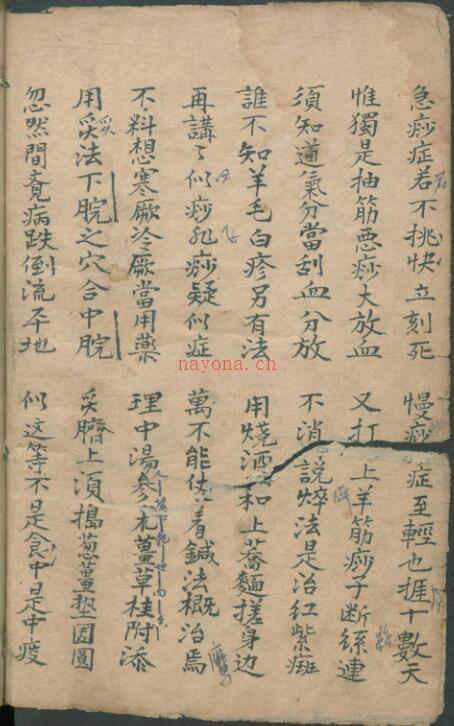 急痧症若不挑快立刻死 慢痧症至輕也捱十數天
惟獨是抽筋悪痧大放血 又打上羊筋痧子斷絲連
須知道氣分當刮血分放 不消說焠法是治紅紫癍
誰不知羊毛白疹另有法 用燒酒和上蕎麵搓身边
再講了似痧非痧疑似症 萬不能仗着鍼法概治焉
不料想寒厥冷厥當用藥 理中湯參朮薑草桂附添
用灸法下脘之穴合中脘 灸臍上須搗葱薑墊圆圓
忽然間竟病跌倒流平地 似这等不是食中是中痰
nayona.cn